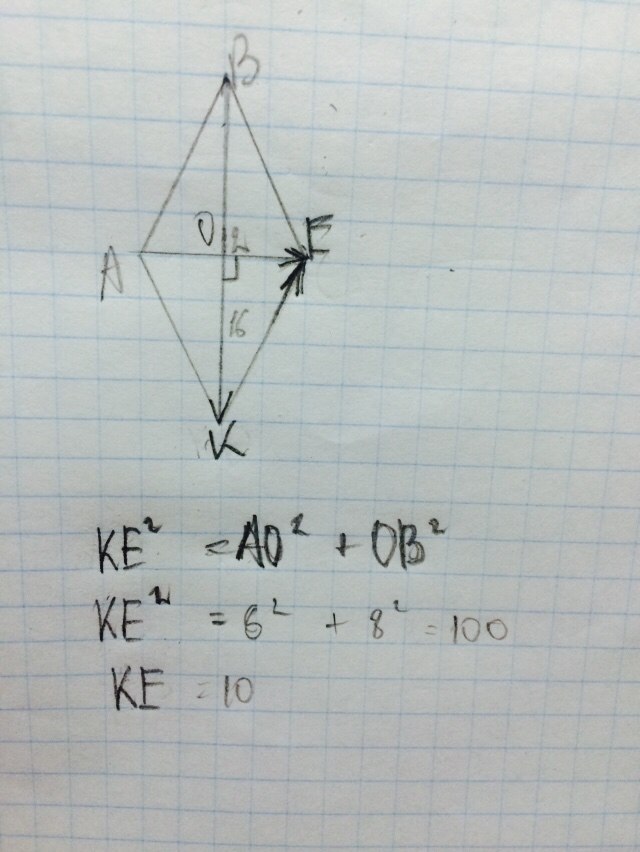 B
O
E
A
16
K
KE² = AO² + OB²
KE² = 6² + 8² = 100
KE = 10